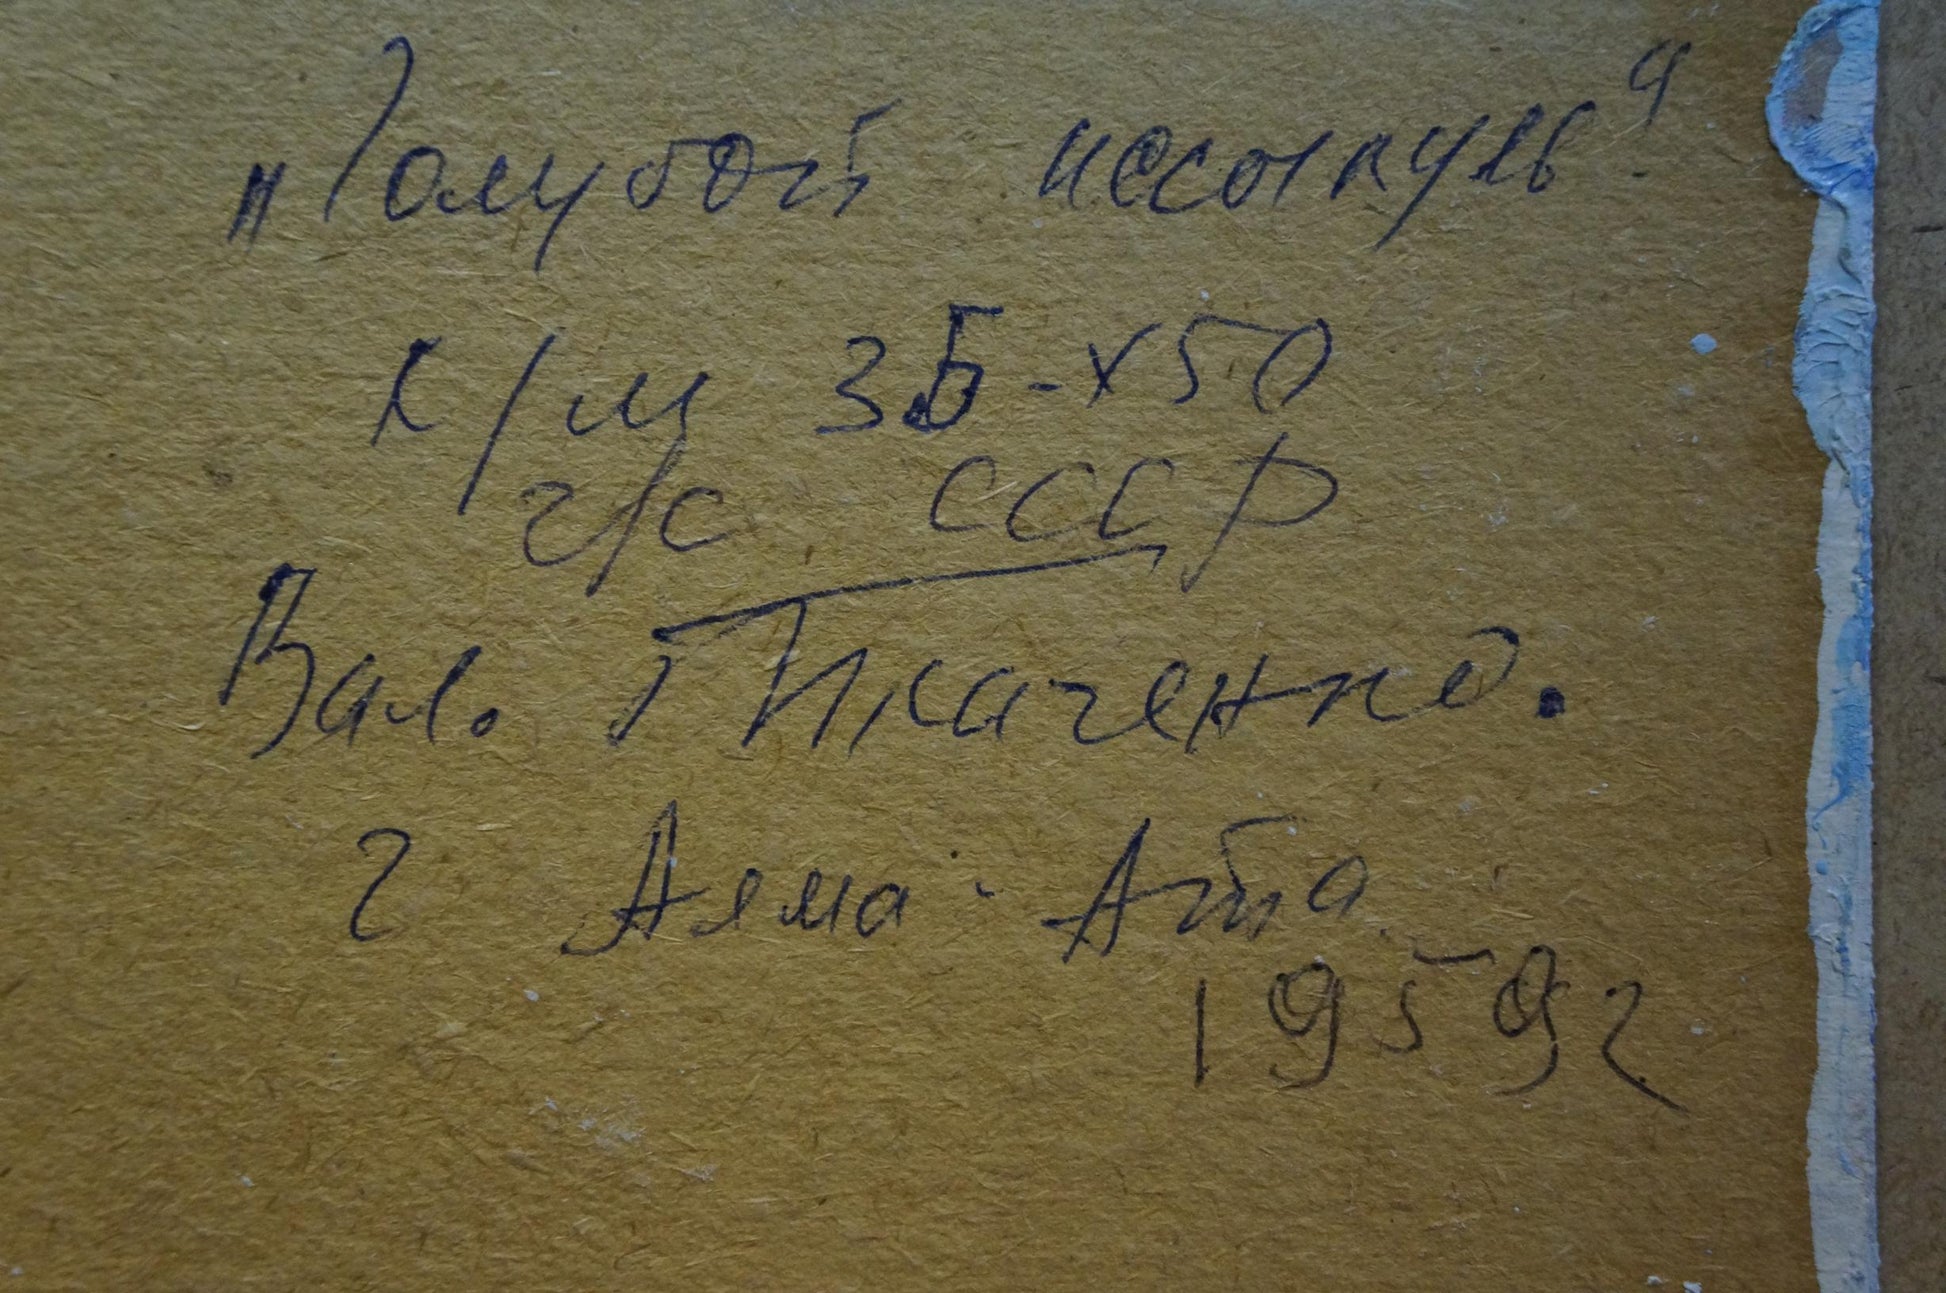 „Голубой иссыкуль“
к/м 35-х50
ч/с СССР
Вал. Ткаченко.
г Алма-Ата
1959г